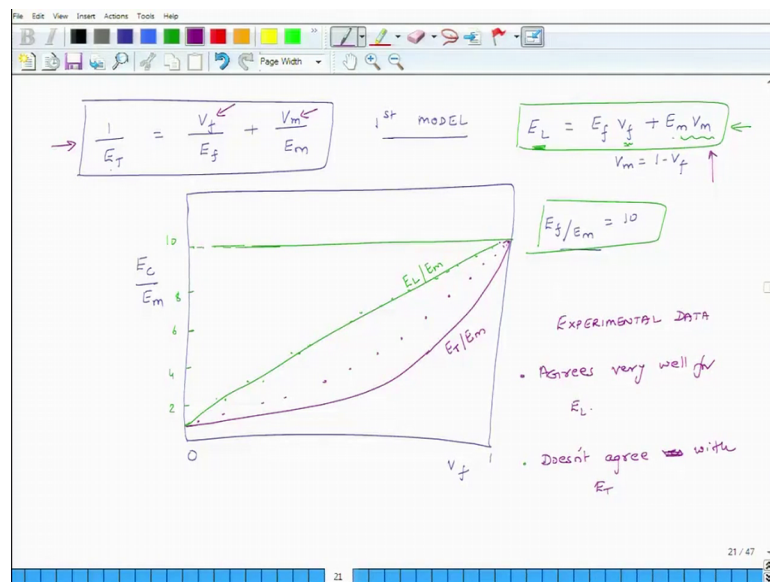 File Edit View Insert Actions Tools Help
B I
Page Width
1/E_T = V_f/E_f + V_m/E_m
1st MODEL
E_L = E_f V_f + E_m V_m
V_m = 1 - V_f
E_f/E_m = 10
E_c/E_m
10
8
6
4
2
E_L/E_m
E_T/E_m
0
V_f
1
EXPERIMENTAL DATA
• AGrees very well for
E_L.
• Doesn't agree with
E_T
21 / 47
21